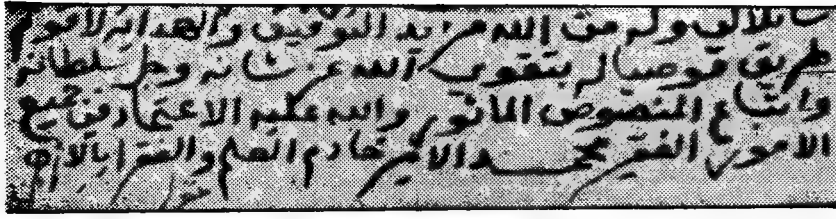 سائلا لي وله من الله مزيد التوفيق والهداية لاقوم
طريق فوصيا له بتقوى الله عز شانه وجل سلطانه
واتباع المنصوص المأثور والله عليه الاعتماد في جميع
الامور الفقير محمد الامير خادم العلم والفقرا بالازهر